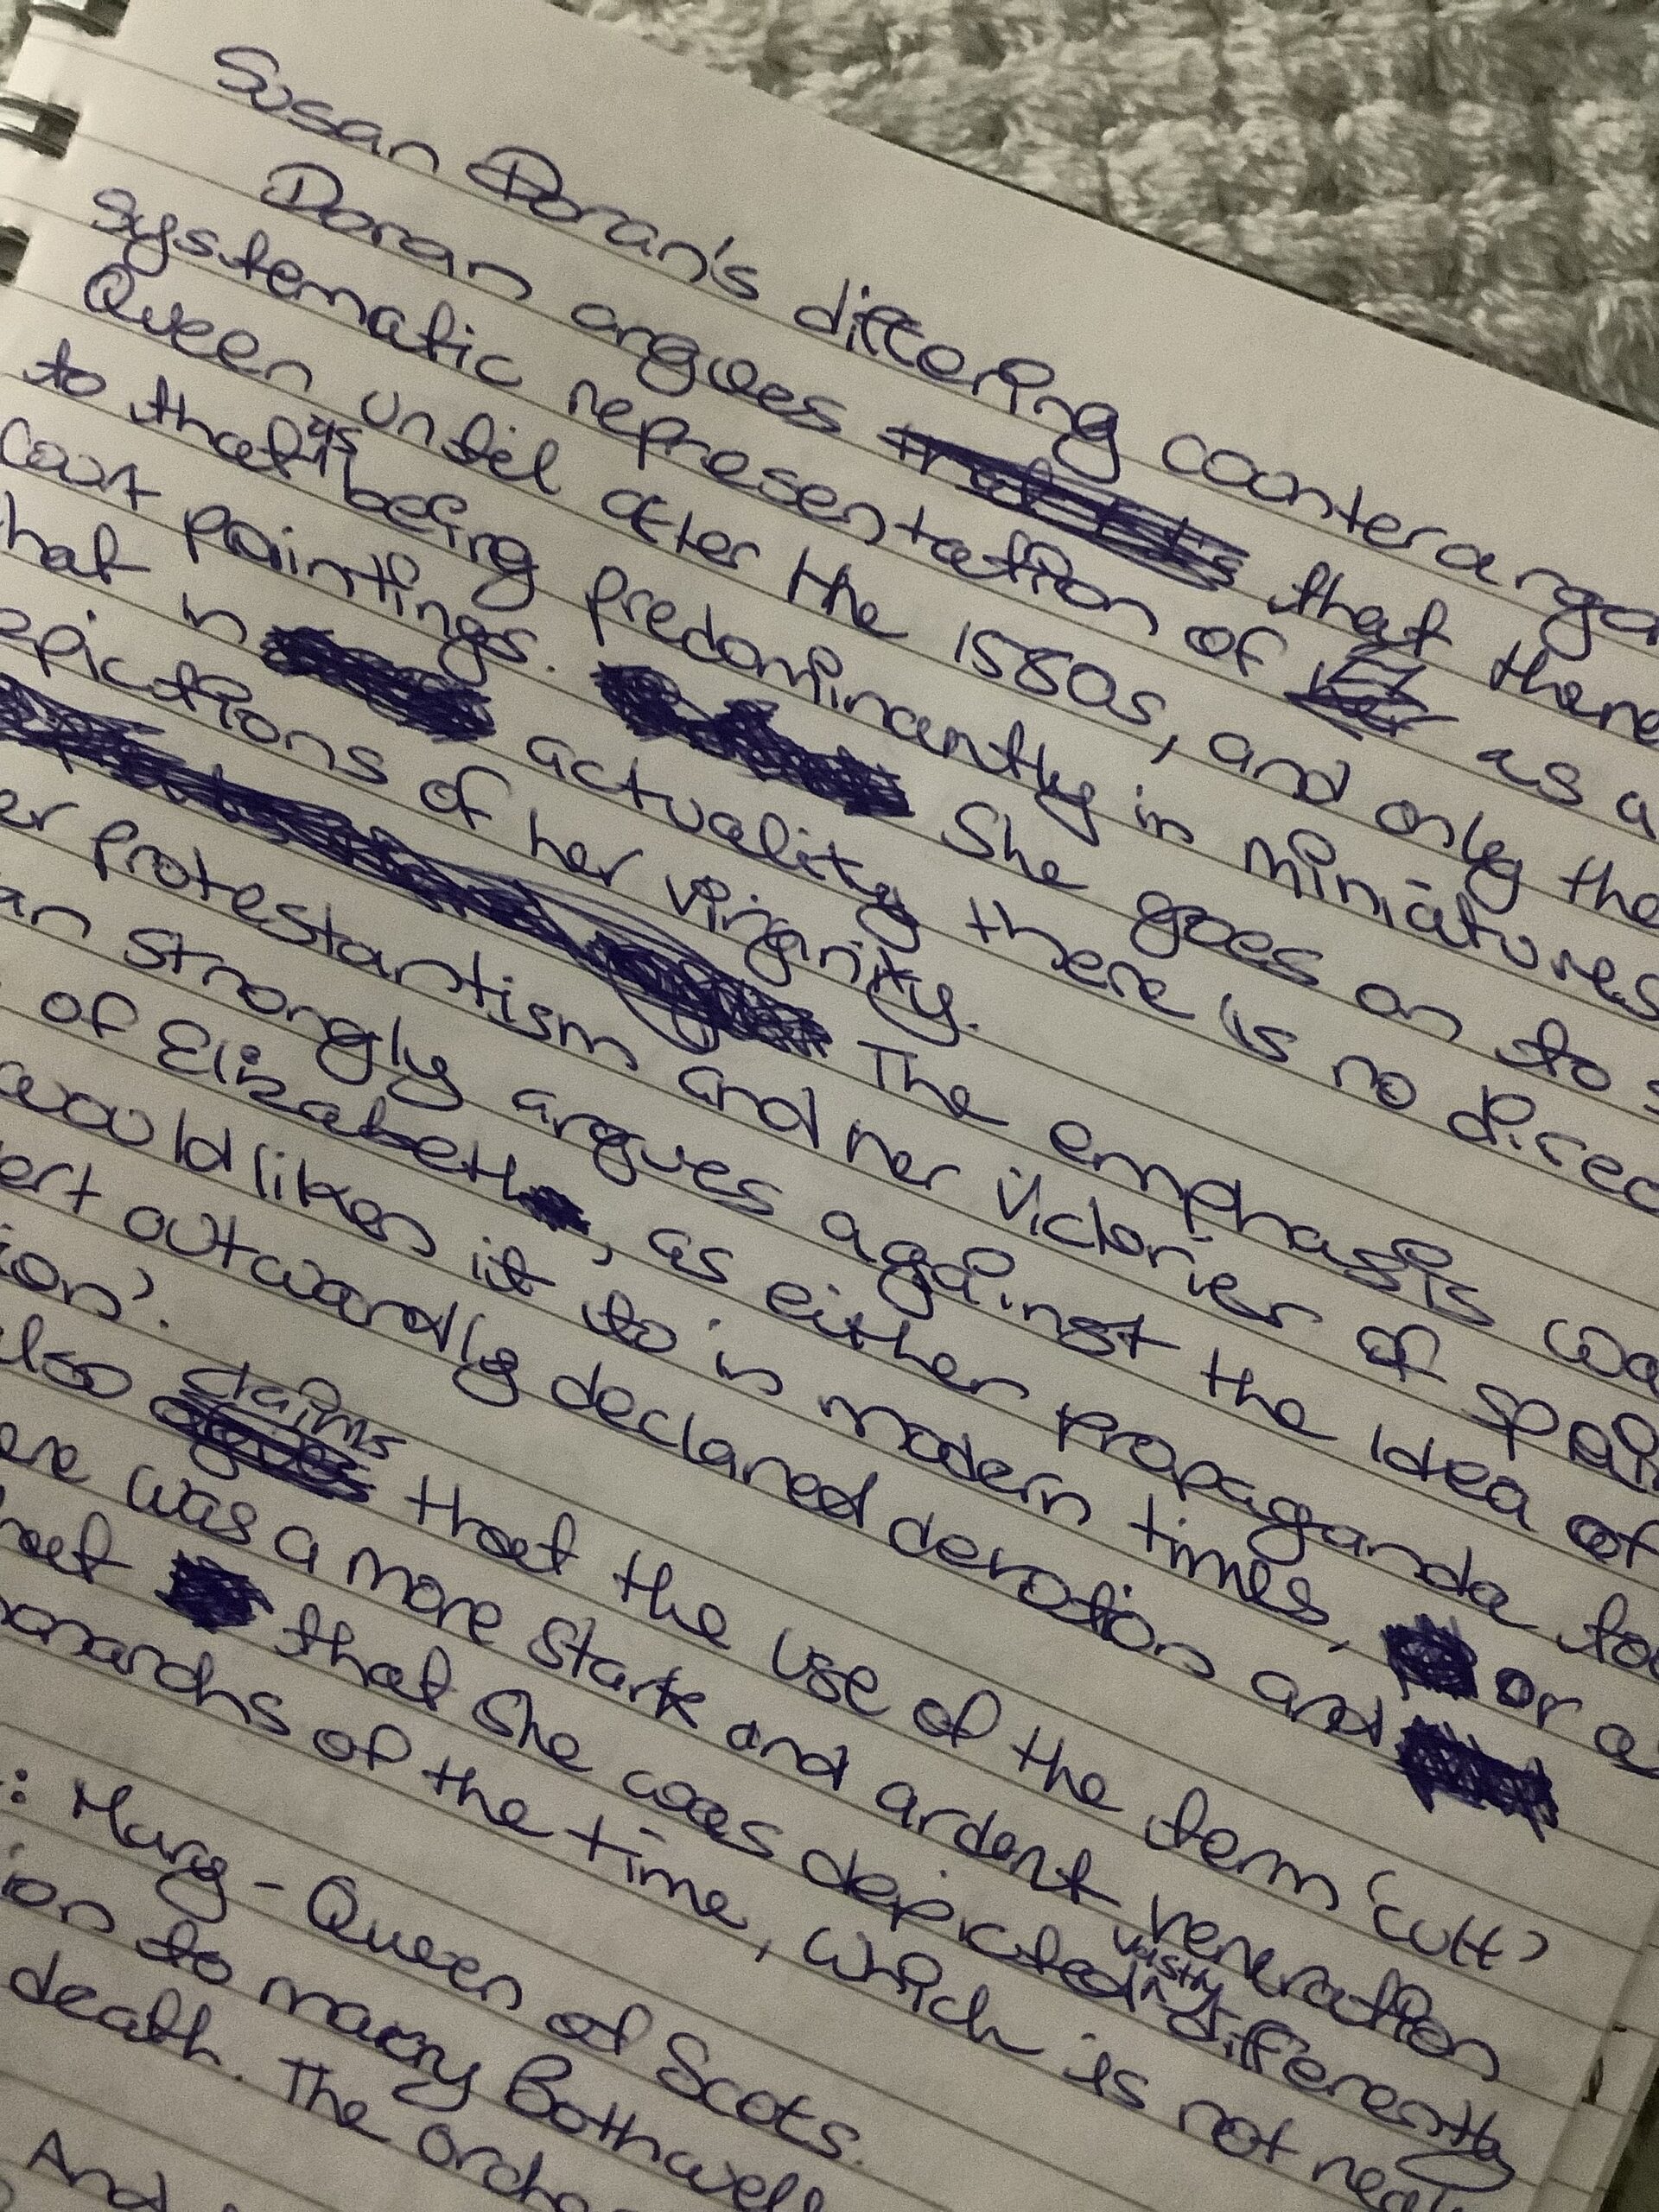 Susan Doran's differing counterargu
Doran argues that there
systematic representation of as a
Queen until after the 1580s, and only the
to that as being predominantly in miniatures
Court paintings. She goes on to s
hat in actuality there is no direc
epictions of her virginity.
The emphasis wa
er protestantism and her victories of Spain
an strongly argues against the idea of
of Elizabeth, as either propaganda to
would liken it to in modern times, or a
ert outwardly declared devotion and
ion'.
also claims that the use of the term 'cult'
ere was a more stark and ardent veneration
hat that she was depicted vastly differently
onarchs of the time, which is not real
: Mary - Queen of Scots.
ion to marry Bothwell
death. The orche
And